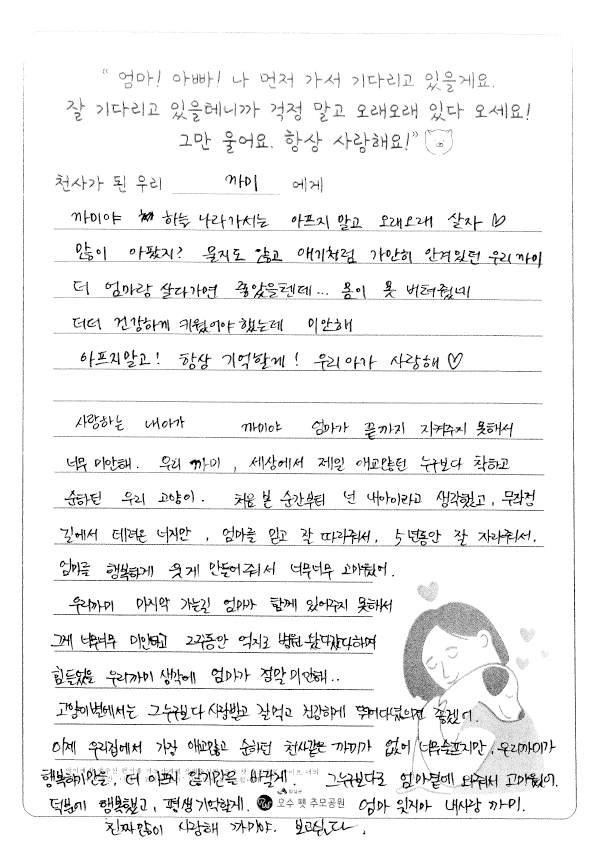 “ 엄마! 아빠! 나 먼저 가서 기다리고 있을게요.
잘 기다리고 있을테니까 걱정 말고 오래오래 있다 오세요!
그만 울어요. 항상 사랑해요!”
천사가 된 우리 까미 에게
까미야 하늘 나라가서는 아프지 말고 오래오래 살자 ♡
많이 아팠지? 울지도 않고 애기처럼 가만히 안겨있던 우리 까미
더 엄마랑 살다가면 좋았을텐데... 몸이 못 버텨줬네
더더 건강하게 키웠어야 했는데 미안해
아프지말고! 항상 기억할게! 우리아가 사랑해 ♡
사랑하는 내아가 까미야 엄마가 끝까지 지켜주지 못해서
너무 미안해. 우리 까미, 세상에서 제일 애교많던 누구보다 착하고
순하던 우리 고양이. 처음 본 순간부터 넌 내아이라고 생각했고, 무작정
길에서 데려온 너지만, 엄마를 믿고 잘 따라줘서, 5년동안 잘 자라줘서.
엄마를 행복하게 웃게 만들어줘서 너무너무 고마웠어.
우리까미 마지막 가는길 엄마가 함께 있어주지 못해서
그게 너무너무 미안하고 2주동안 억지로 병원 왔다갔다하며
힘들었을 우리까미 생각에 엄마가 정말 미안해..
고양이별에서는 그누구보다 사랑받고 잘먹고 건강하게 뛰어다녔으면 좋겠어.
이제 우리집에서 가장 애교많고 순하던 천사같은 까미가 없어 너무슬프지만, 우리까미가
행복하기만을, 더 아프지 않기만을 바랄게. 그누구보다도 엄마곁에 와줘서 고마웠어.
덕분에 행복했고, 평생 기억할게. 엄마 잊지마 내사랑 까미.
진짜 많이 사랑해 까미야. 보고싶다.
오수 펫 추모공원